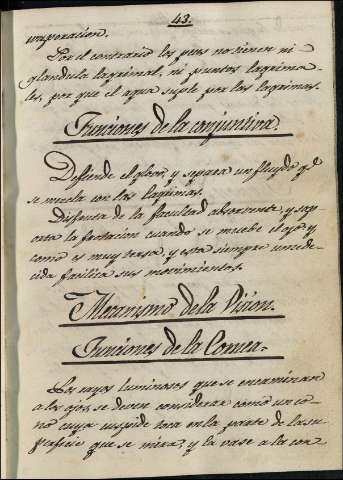 43.
evaporacion.
Por el contrario los peces no tienen ni
glandula lagrimal, ni puntos lagrima
les, por que el agua suple por las lagrimas.
Funciones de la conjuntiva.
Defiende el globo, y separa un fluydo qe.
se mezcla con las lagrimas.
Disfruta de la facultad absorvente, y sop
orta la frotacion cuando se muebe el ojo, y
como es muy tersa, y esta siempre umede-
cida facilita sus movimientos.
Mecanismo de la Vision.
Funciones de la Cornea.
Los rayos luminosos que se encaminan
a los ojos, se deven considerar como un co-
no cuya cuspide toca en la parte de la su-
perficie que se mira, y la vase a la cor